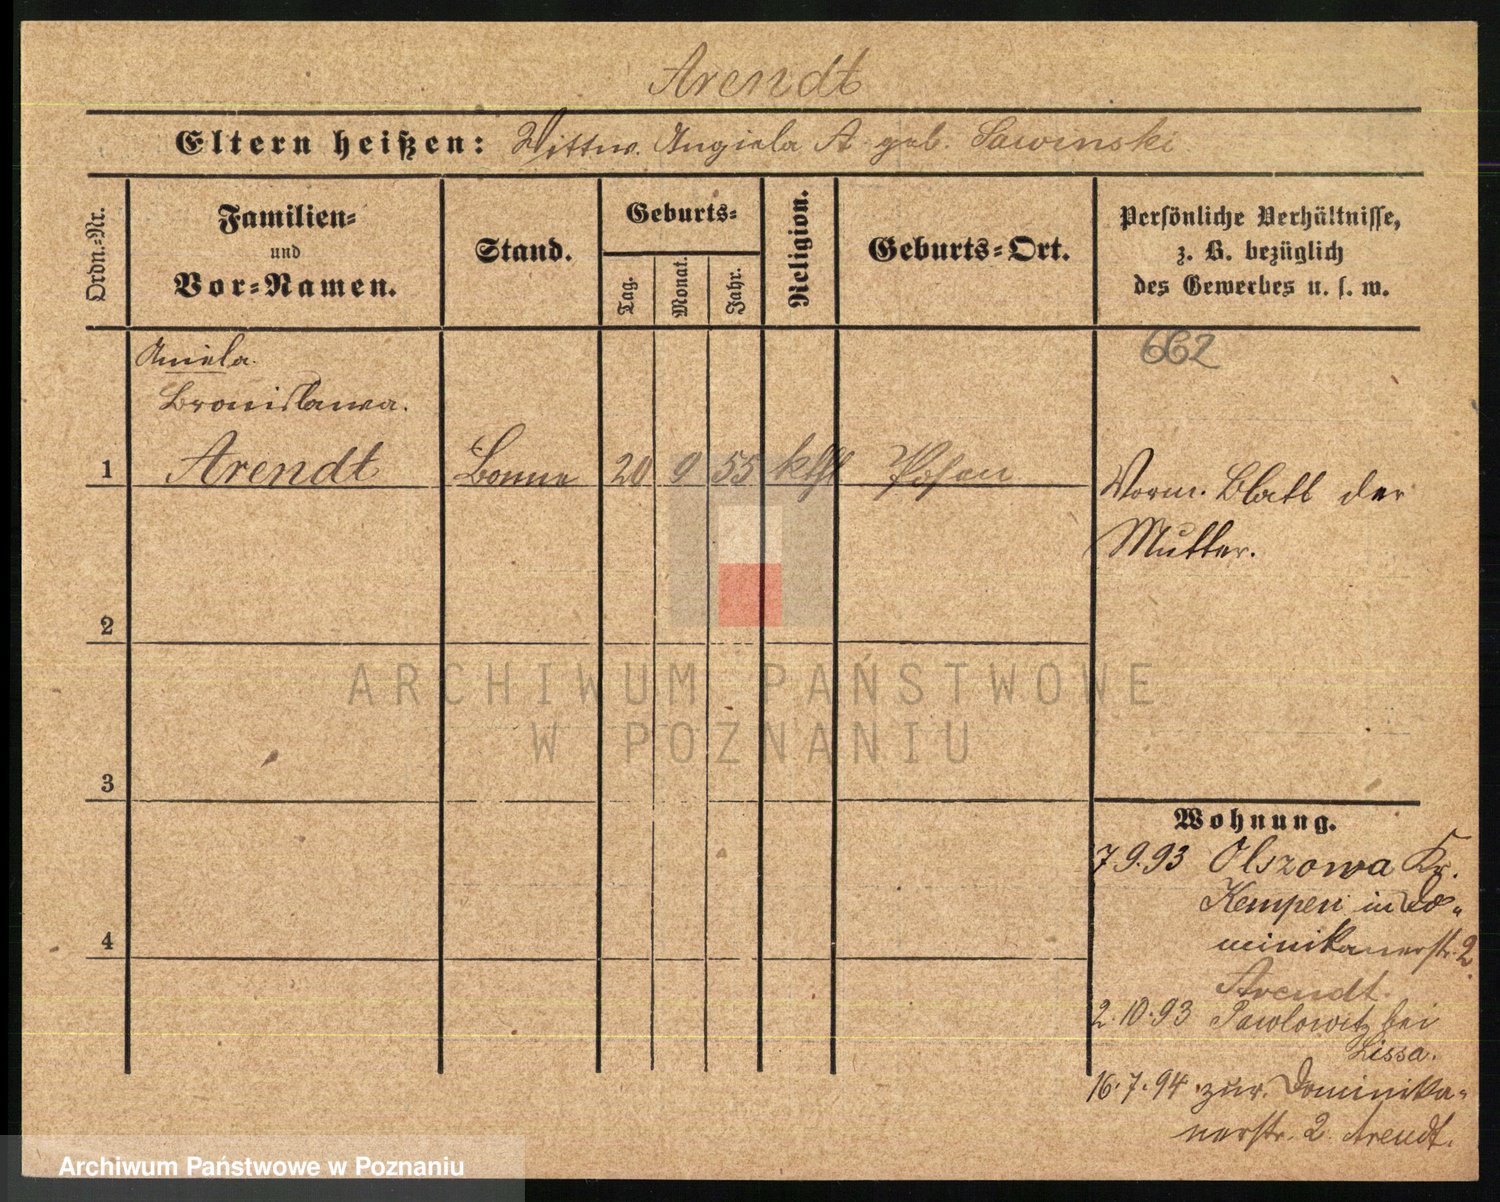 Arendt
Eltern heißen: Wittw. Angiela A. geb. Sawinski
Ordn.=Nr.
Familien=
und
Vor=Namen.
Stand.
Geburts=
Tag.
Monat.
Jahr.
Religion.
Geburts=Ort.
Persönliche Verhältnisse,
z. B. bezüglich
des Gewerbes u. s. w.
Aniela
Bronislawa.
1 Arendt Bonne 20 9 55 kthl Posen
662
Vorm. Blatt der
Mutter.
2
3
4
Wohnung.
7.9.93 Olszowa Kr.
Kempen in Do=
minikanerstr. 2.
Arendt.
2.10.93 Pawlowitz bei
Lissa.
16.7.94 zur. Dominika=
nerstr. 2. Arendt.
ARCHIWUM PAŃSTWOWE
W POZNANIU
Archiwum Państwowe w Poznaniu